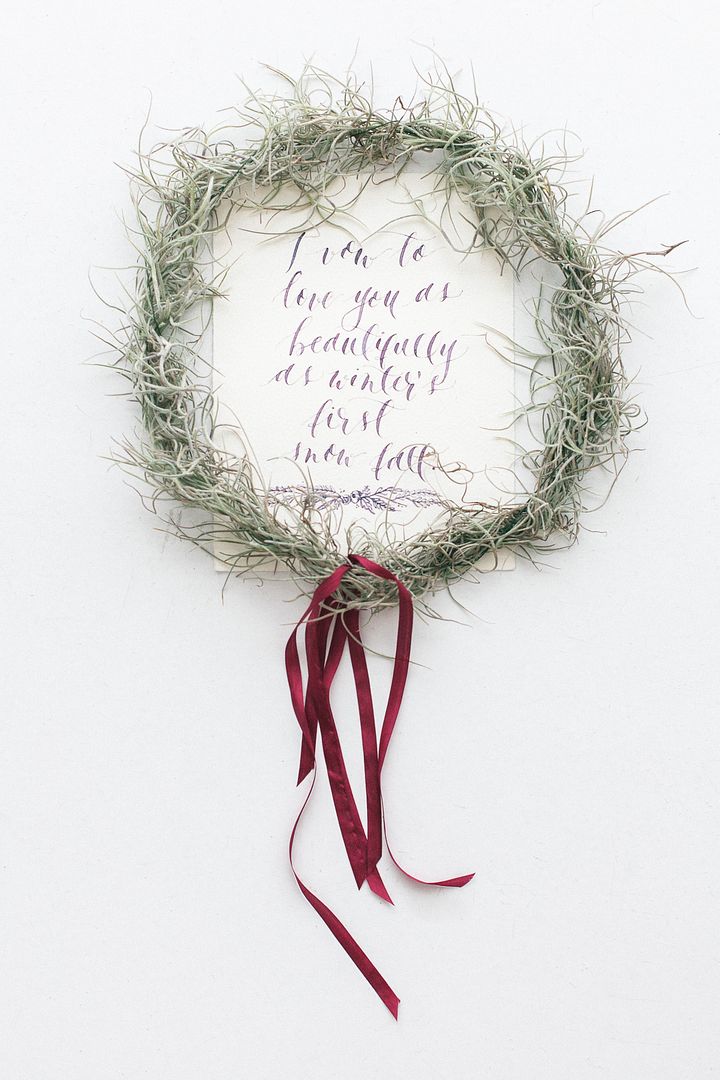 I vow to
love you as
beautifully
as winter's
first
snow fall.